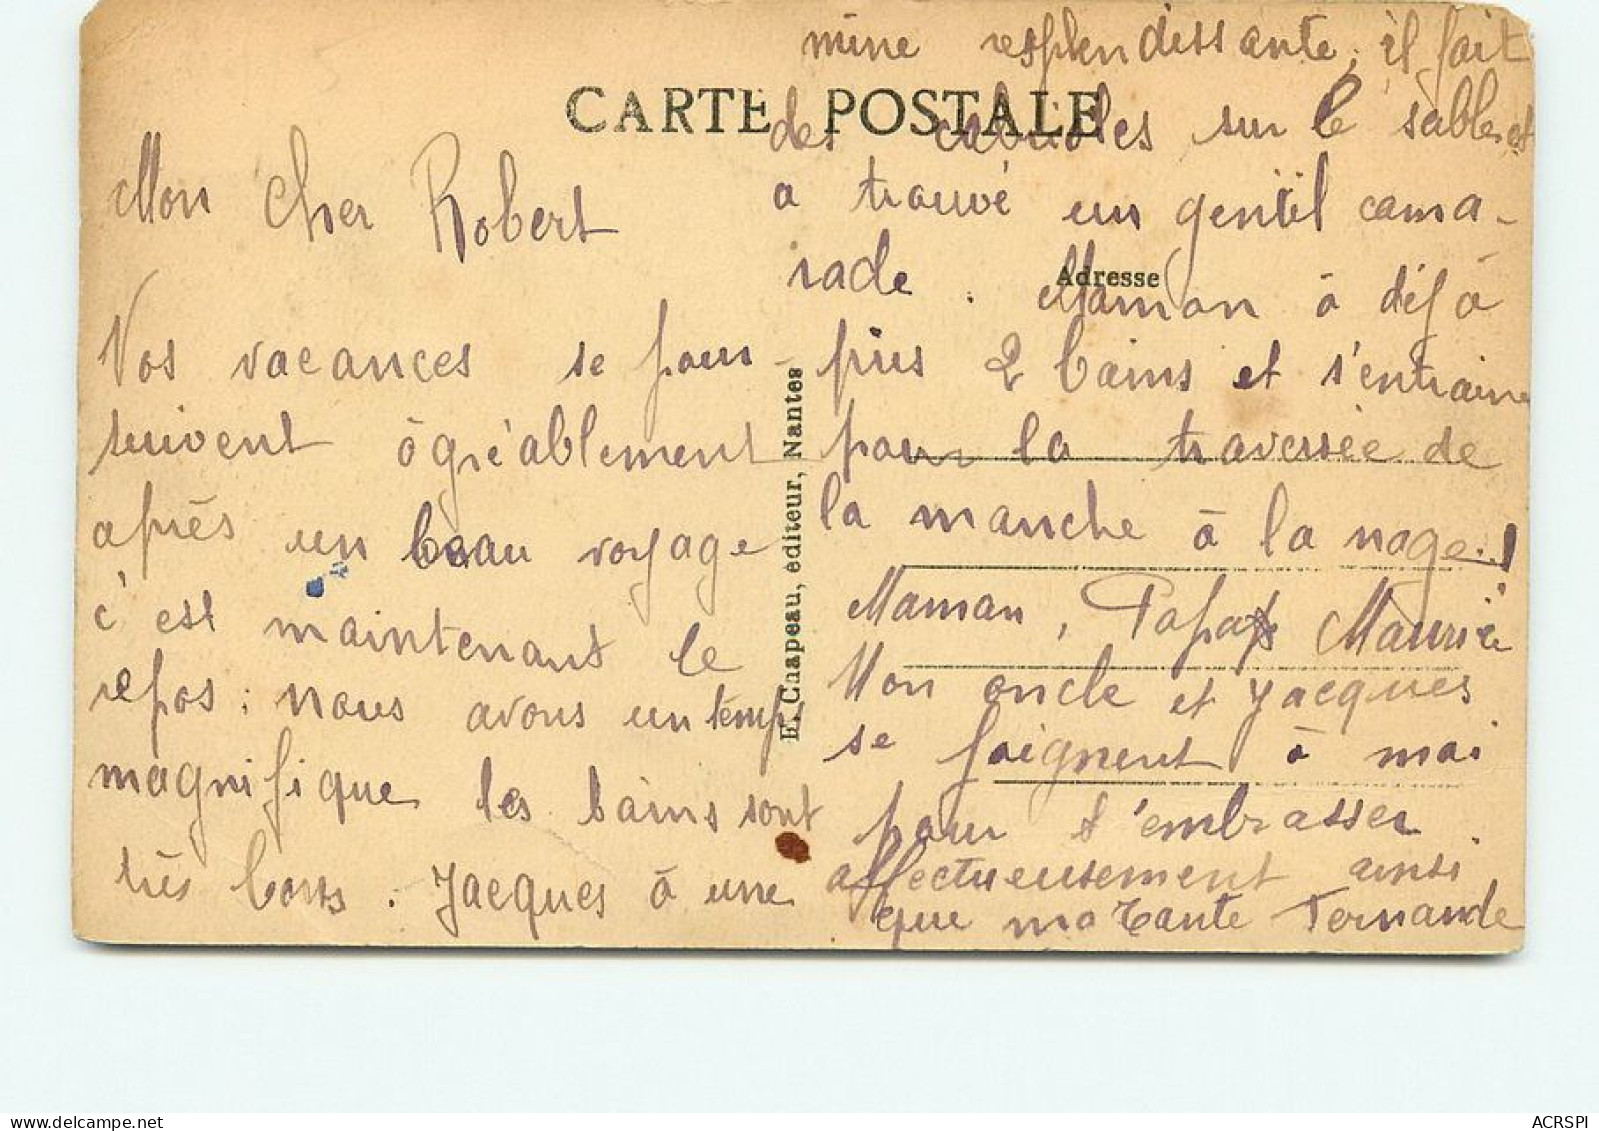 CARTE POSTALE
Mon cher Robert
Vos vacances se pour-
suivent àgréablement
après un beau voyage
c'est maintenant le
repos : nous avons un temps
magnifique les bains sont
très bons . Jacques à une
E. Chapeau, éditeur, Nantes
mine resplendissante, il fait
des cabrioles sur le sable et
a trouvé un gentil cama-
rade . Maman à déjà
Adresse
pris 2 bains et s'entraine
pour la traversée de
la manche à la nage.!
Maman, Papa, Maurice
Mon oncle et Jacques
se joignent à moi
pour t'embrasser
affectueusement ainsi
que ma tante Fernande
ACRSPI
www.delcampe.net